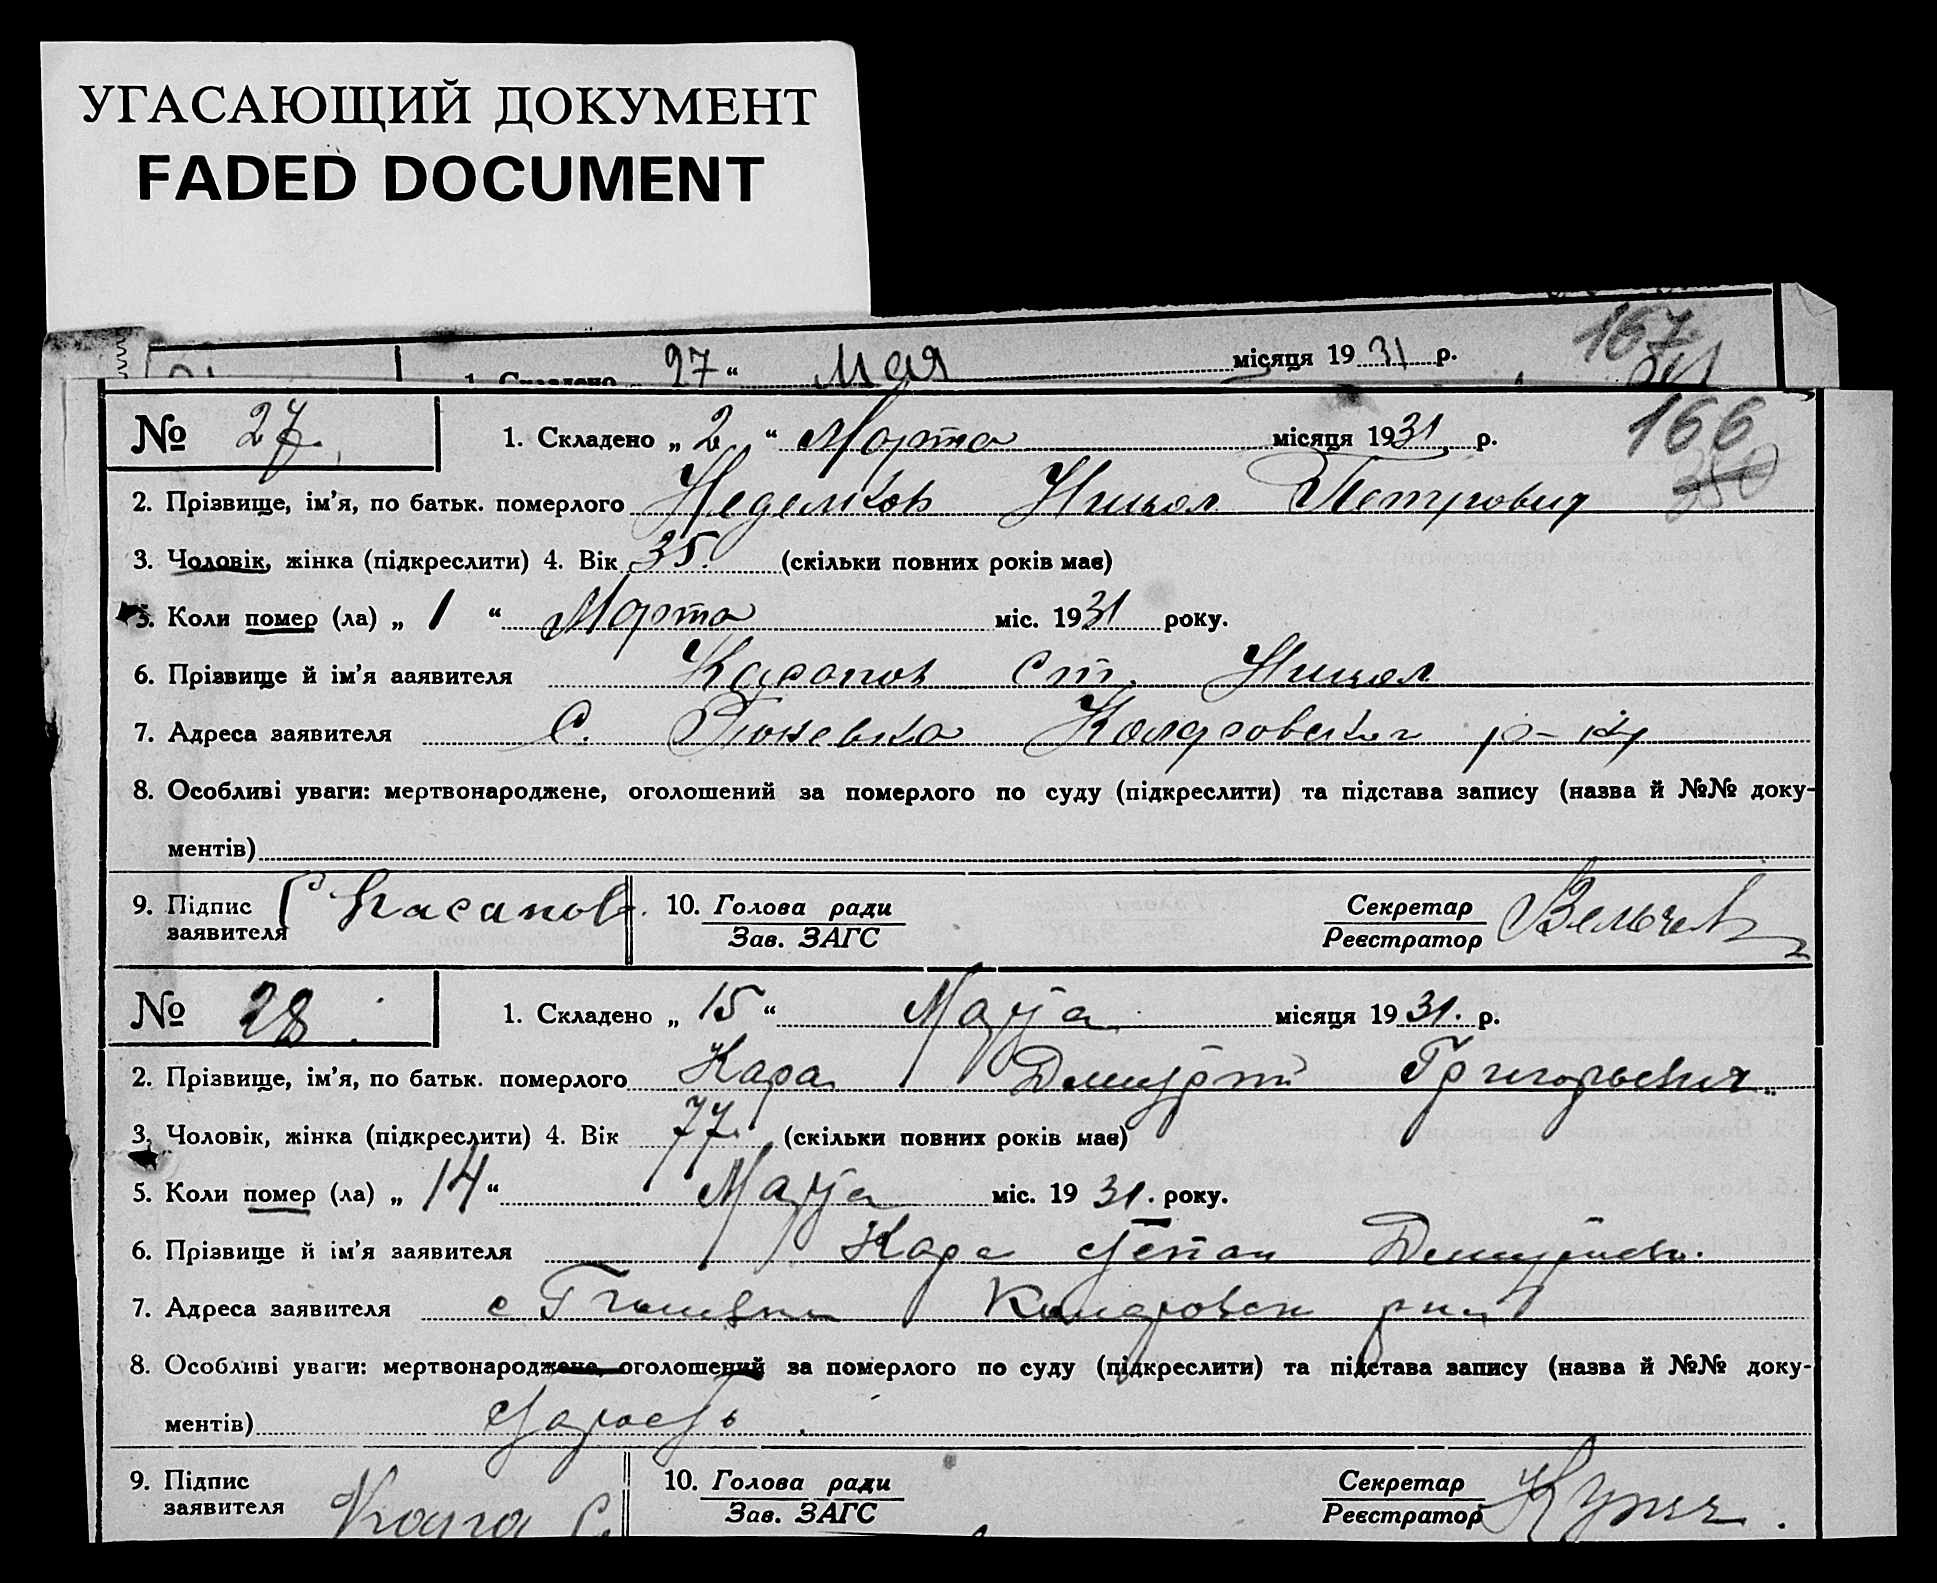 УГАСАЮЩИЙ ДОКУМЕНТ
FADED DOCUMENT
1. Складено 27 “ мая місяця 1931 р. 167
№ 27. 1. Складено „ 2 “ Марта місяця 1931 р. 166
350
2. Прізвище, ім’я, по батьк. померлого Неделков Никол Петрович
3. Чоловік, жінка (підкреслити) 4. Вік 35. (скільки повних років має)
5. Коли помер (ла) „ 1 “ Марта міс. 1931 року.
6. Прізвище й ім’я заявителя Касапов Ст. Никол
7. Адреса заявителя С. р-ну
8. Особливі уваги: мертвонароджене, оголошений за померлого по суду (підкреслити) та підстава запису (назва й №№ доку-
ментів)
9. Підпис заявителя С Касапов. 10. Голова ради Зав. ЗАГС Секретар Реєстратор Вельчев
№ 28. 1. Складено „ 15 “ Марта місяця 1931. р.
2. Прізвище, ім’я, по батьк. померлого Кара Дмитрий Григорьевич
3. Чоловік, жінка (підкреслити) 4. Вік 77. (скільки повних років має)
5. Коли помер (ла) „ 14 “ Марта міс. 1931. року.
6. Прізвище й ім’я заявителя Кара Степан Дмитриев.
7. Адреса заявителя с
8. Особливі уваги: мертвонароджене, оголошений за померлого по суду (підкреслити) та підстава запису (назва й №№ доку-
ментів) старость
9. Підпис заявителя Кара С. 10. Голова ради Зав. ЗАГС Секретар Реєстратор